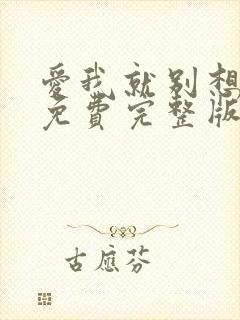 愛我就别想
免費完整版
古應芬